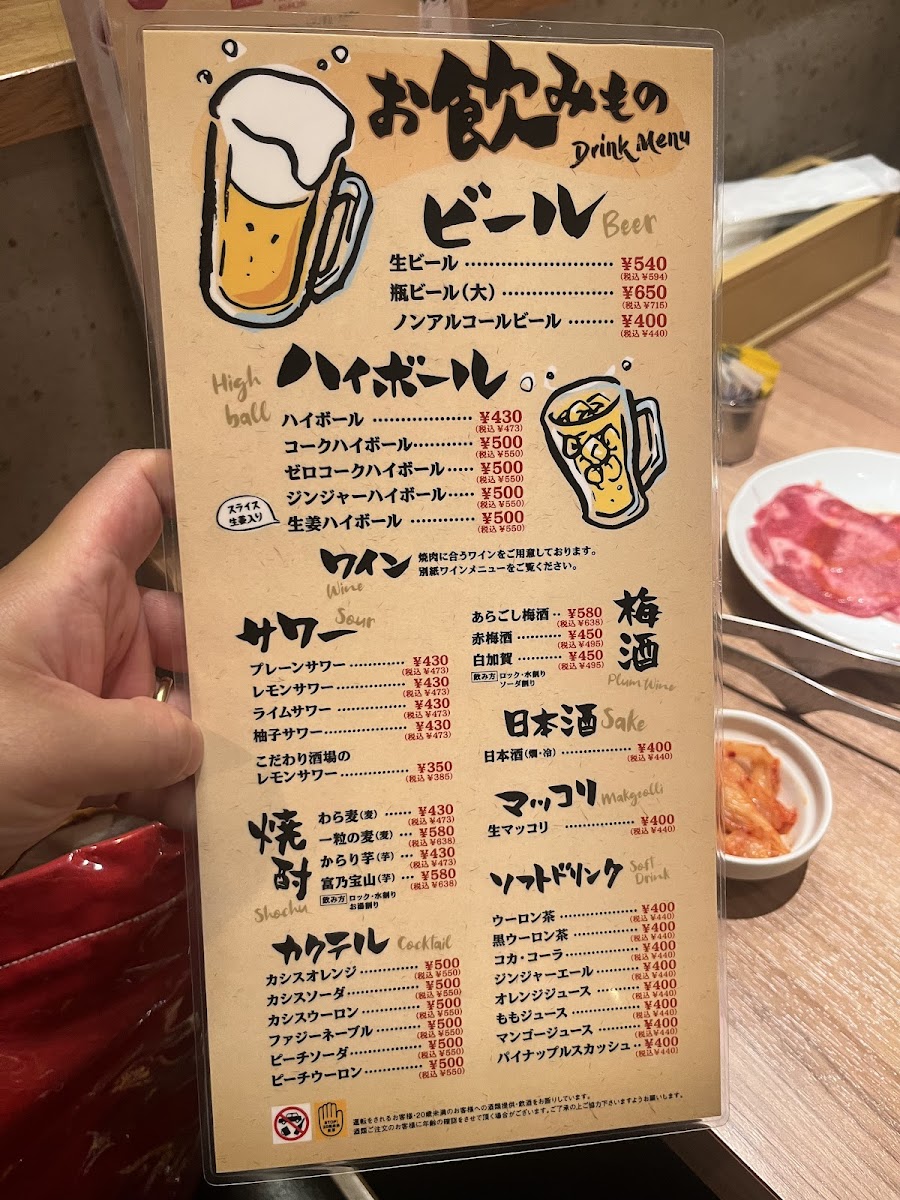 お飲みもの
Drink Menu
ビール Beer
生ビール ¥540
(税込 ¥594)
瓶ビール(大) ¥650
(税込 ¥715)
ノンアルコールビール ¥400
(税込 ¥440)
High ball
ハイボール
ハイボール ¥430
(税込 ¥473)
コークハイボール ¥500
(税込 ¥550)
ゼロコークハイボール ¥500
(税込 ¥550)
ジンジャーハイボール ¥500
(税込 ¥550)
スライス
生姜入り
生姜ハイボール ¥500
(税込 ¥550)
ワイン
Wine
焼肉に合うワインをご用意しております。
別紙ワインメニューをご覧ください。
サワー Sour
プレーンサワー ¥430
(税込 ¥473)
レモンサワー ¥430
(税込 ¥473)
ライムサワー ¥430
(税込 ¥473)
柚子サワー ¥430
(税込 ¥473)
こだわり酒場の
レモンサワー ¥350
(税込 ¥385)
焼酎
Shochu
わら麦(麦) ¥430
(税込 ¥473)
一粒の麦(麦) ¥580
(税込 ¥638)
からり芋(芋) ¥430
(税込 ¥473)
富乃宝山(芋) ¥580
(税込 ¥638)
飲み方 ロック・水割り
お湯割り
カクテル Cocktail
カシスオレンジ ¥500
(税込 ¥550)
カシスソーダ ¥500
(税込 ¥550)
カシスウーロン ¥500
(税込 ¥550)
ファジーネーブル ¥500
(税込 ¥550)
ピーチソーダ ¥500
(税込 ¥550)
ピーチウーロン ¥500
(税込 ¥550)
梅酒
Plum Wine
あらごし梅酒 ¥580
(税込 ¥638)
赤梅酒 ¥450
(税込 ¥495)
白加賀 ¥450
(税込 ¥495)
飲み方 ロック・水割り
ソーダ割り
日本酒 Sake
日本酒(燗・冷) ¥400
(税込 ¥440)
マッコリ Makgeolli
生マッコリ ¥400
(税込 ¥440)
ソフトドリンク Soft Drink
ウーロン茶 ¥400
(税込 ¥440)
黒ウーロン茶 ¥400
(税込 ¥440)
コカ・コーラ ¥400
(税込 ¥440)
ジンジャーエール ¥400
(税込 ¥440)
オレンジジュース ¥400
(税込 ¥440)
ももジュース ¥400
(税込 ¥440)
マンゴージュース ¥400
(税込 ¥440)
パイナップルスカッシュ ¥400
(税込 ¥440)
運転をされるお客様・20歳未満のお客様への酒類提供・飲酒をお断りしています。
酒類ご注文のお客様に年齢の確認をさせて頂く場合がございます。ご了承の上ご協力下さいますようお願いします。